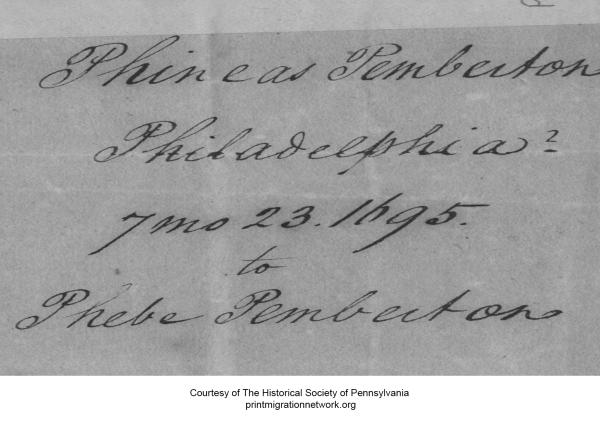 Phineas Pemberton
Philadelphia 2
7 mo 23. 1695.
to
Phebe Pemberton
Courtesy of The Historical Society of Pennsylvania
printmigrationnetwork.org